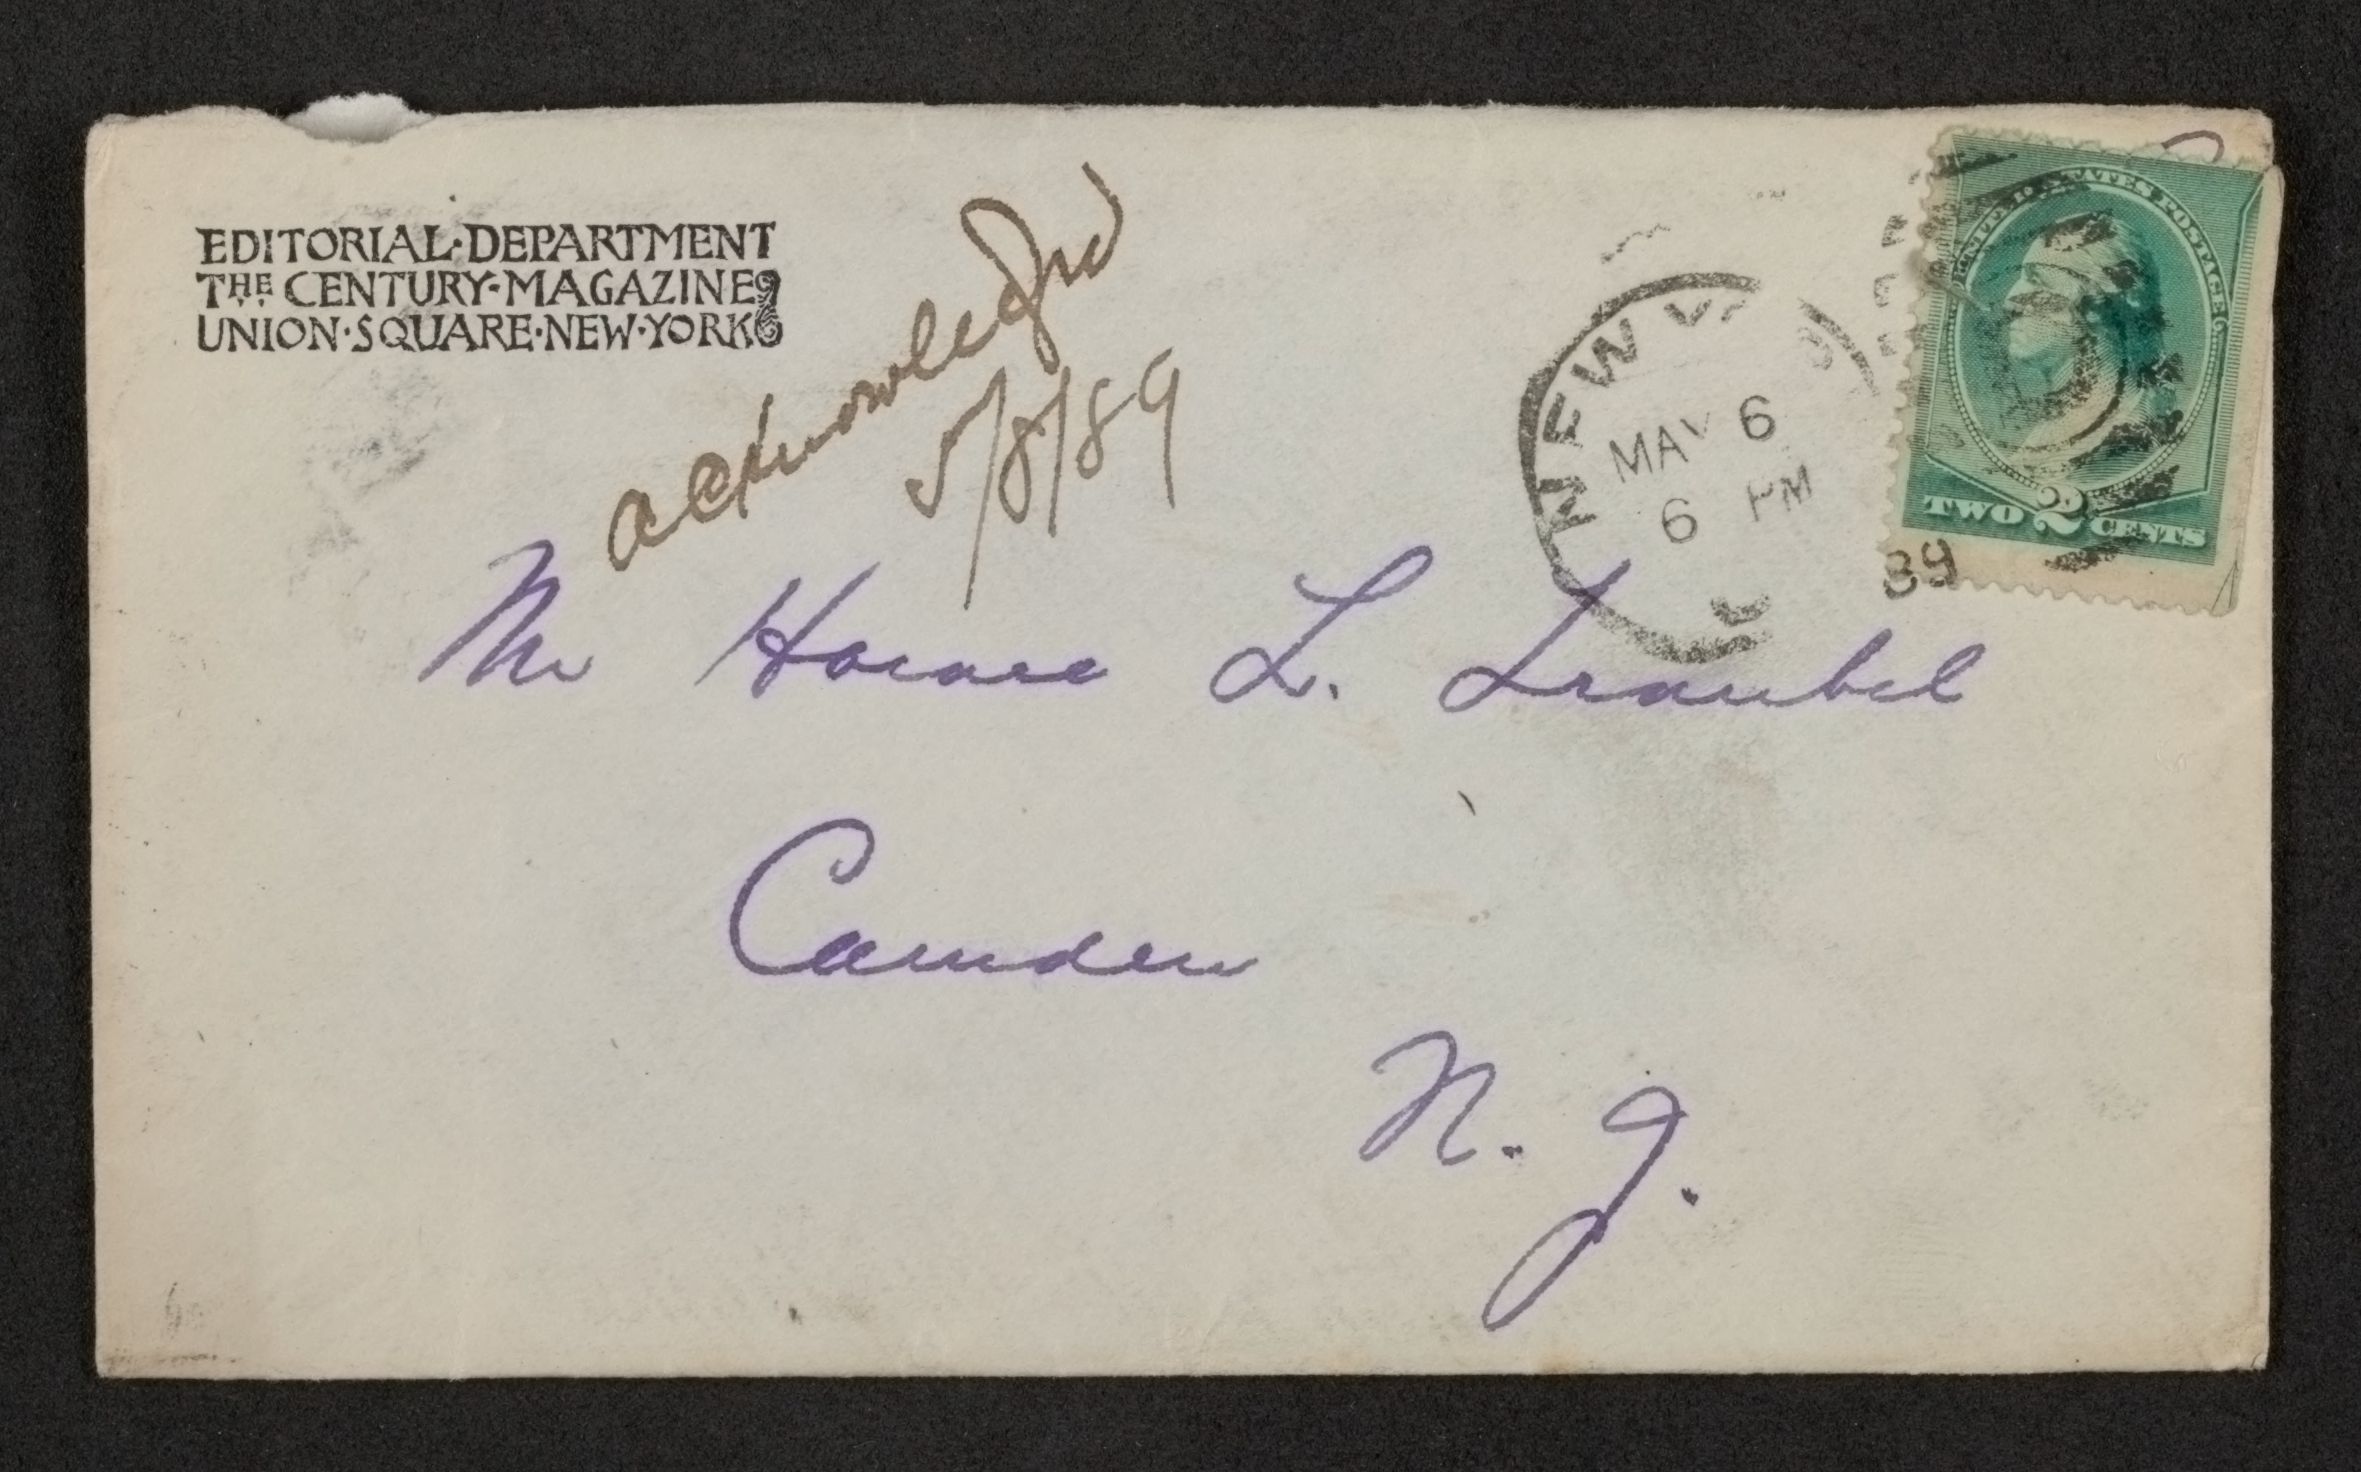 EDITORIAL·DEPARTMENT
THE CENTURY·MAGAZINE
UNION·SQUARE·NEW·YORK
acknowledged
5/8/89
NEW YORK
MAY 6
6 PM
89
UNITED STATES POSTAGE
TWO 2 CENTS
Mr Horace L. Traubel
Camden
N. J.